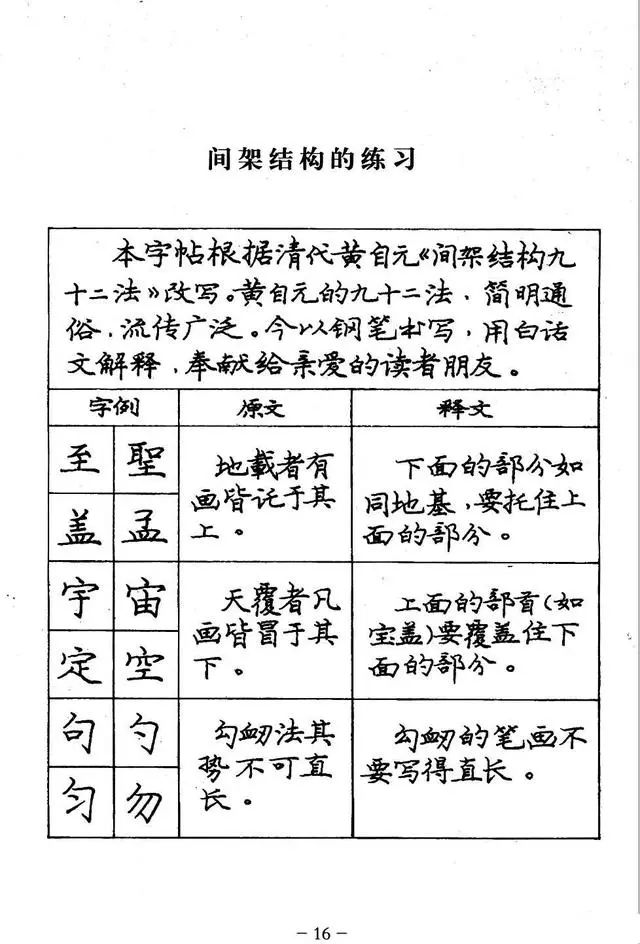 间架结构的练习
本字帖根据清代黄自元《间架结构九
十二法》改写。黄自元的九十二法，简明通
俗，流传广泛。今以钢笔书写，用白话
文解释，奉献给亲爱的读者朋友。
字例 原文 释文
至 聖
盖 孟
地載者有
画皆託于其
上。
下面的部分如
同地基，要托住上
面的部分。
宇 宙
定 空
天覆者凡
画皆冒于其
下。
上面的部首(如
宝盖)要覆盖住下
面的部分。
句 勺
匀 勿
勾衂法其
势不可直
长。
勾衂的笔画不
要写得直长。
- 16 -